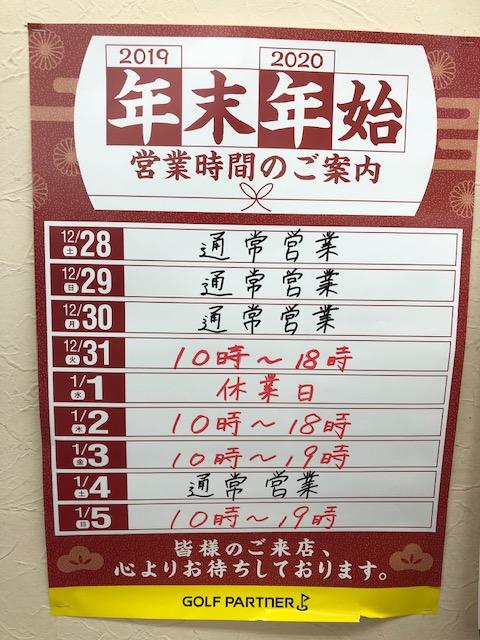 2019 2020
年末年始
営業時間のご案内
12/28 土 通常営業
12/29 日 通常営業
12/30 月 通常営業
12/31 火 10時～18時
1/1 水 休業日
1/2 木 10時～18時
1/3 金 10時～19時
1/4 土 通常営業
1/5 日 10時～19時
皆様のご来店、
心よりお待ちしております。
GOLF PARTNER